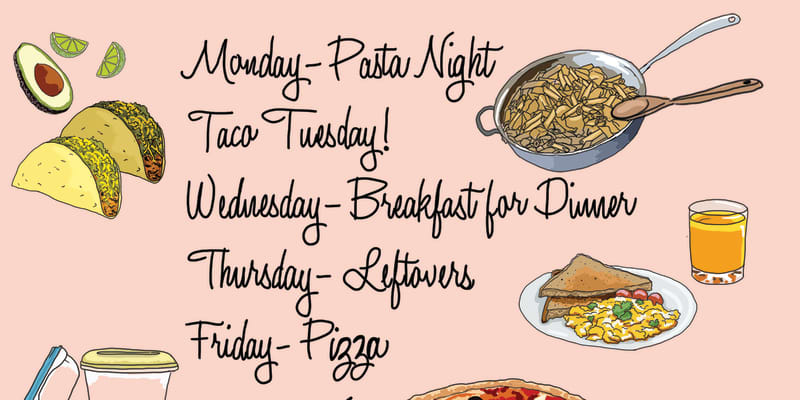 Monday- Pasta Night
Taco Tuesday!
Wednesday- Breakfast for Dinner
Thursday- Leftovers
Friday- Pizza